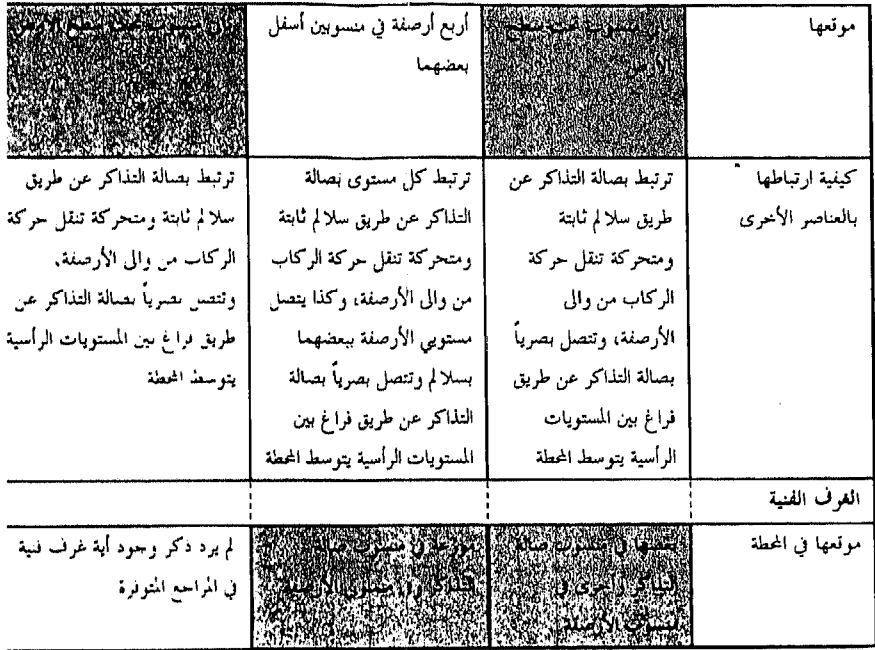 موقعها
ثاني منسوب تحت سطح
الأرض
أربع أرصفة في منسوبين أسفل
بعضهما
ثاني منسوب تحت سطح الأرض
كيفية ارتباطها
بالعناصر الأخرى
ترتبط بصالة التذاكر عن
طريق سلالم ثابتة
ومتحركة تنقل حركة
الركاب من والى
الأرصفة، وتتصل بصرياً
بصالة التذاكر عن طريق
فراغ بين المستويات
الرأسية يتوسط المحطة
ترتبط كل مستوى بصالة
التذاكر عن طريق سلالم ثابتة
ومتحركة تنقل حركة الركاب
من والى الأرصفة، وكذا يتصل
مستويي الأرصفة ببعضهما
بسلالم وتتصل بصرياً بصالة
التذاكر عن طريق فراغ بين
المستويات الرأسية يتوسط المحطة
ترتبط بصالة التذاكر عن طريق
سلالم ثابتة ومتحركة تنقل حركة
الركاب من والى الأرصفة،
وتتصل بصرياً بصالة التذاكر عن
طريق فراغ بين المستويات الرأسية
يتوسط المحطة
الغرف الفنية
موقعها في المحطة
بعضها في منسوب صالة
التذاكر وأخرى في
منسوب الأرصفة
موزعة في منسوب صالة
التذاكر وفي منسوبي الأرصفة
لم يرد ذكر وجود أية غرف فنية
في المراجع المتوفرة